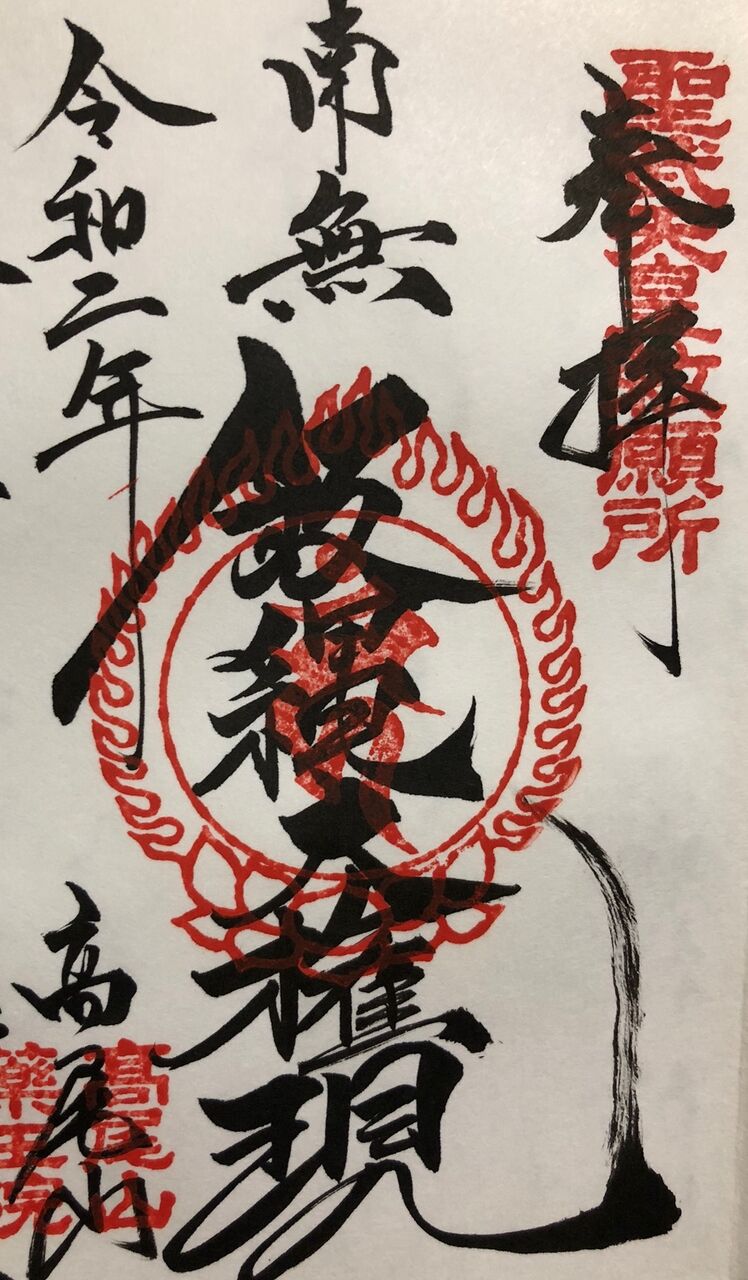 奉拝
聖武天皇勅願所
南無飯縄大権現
令和二年
高尾山
髙尾山
藥王院